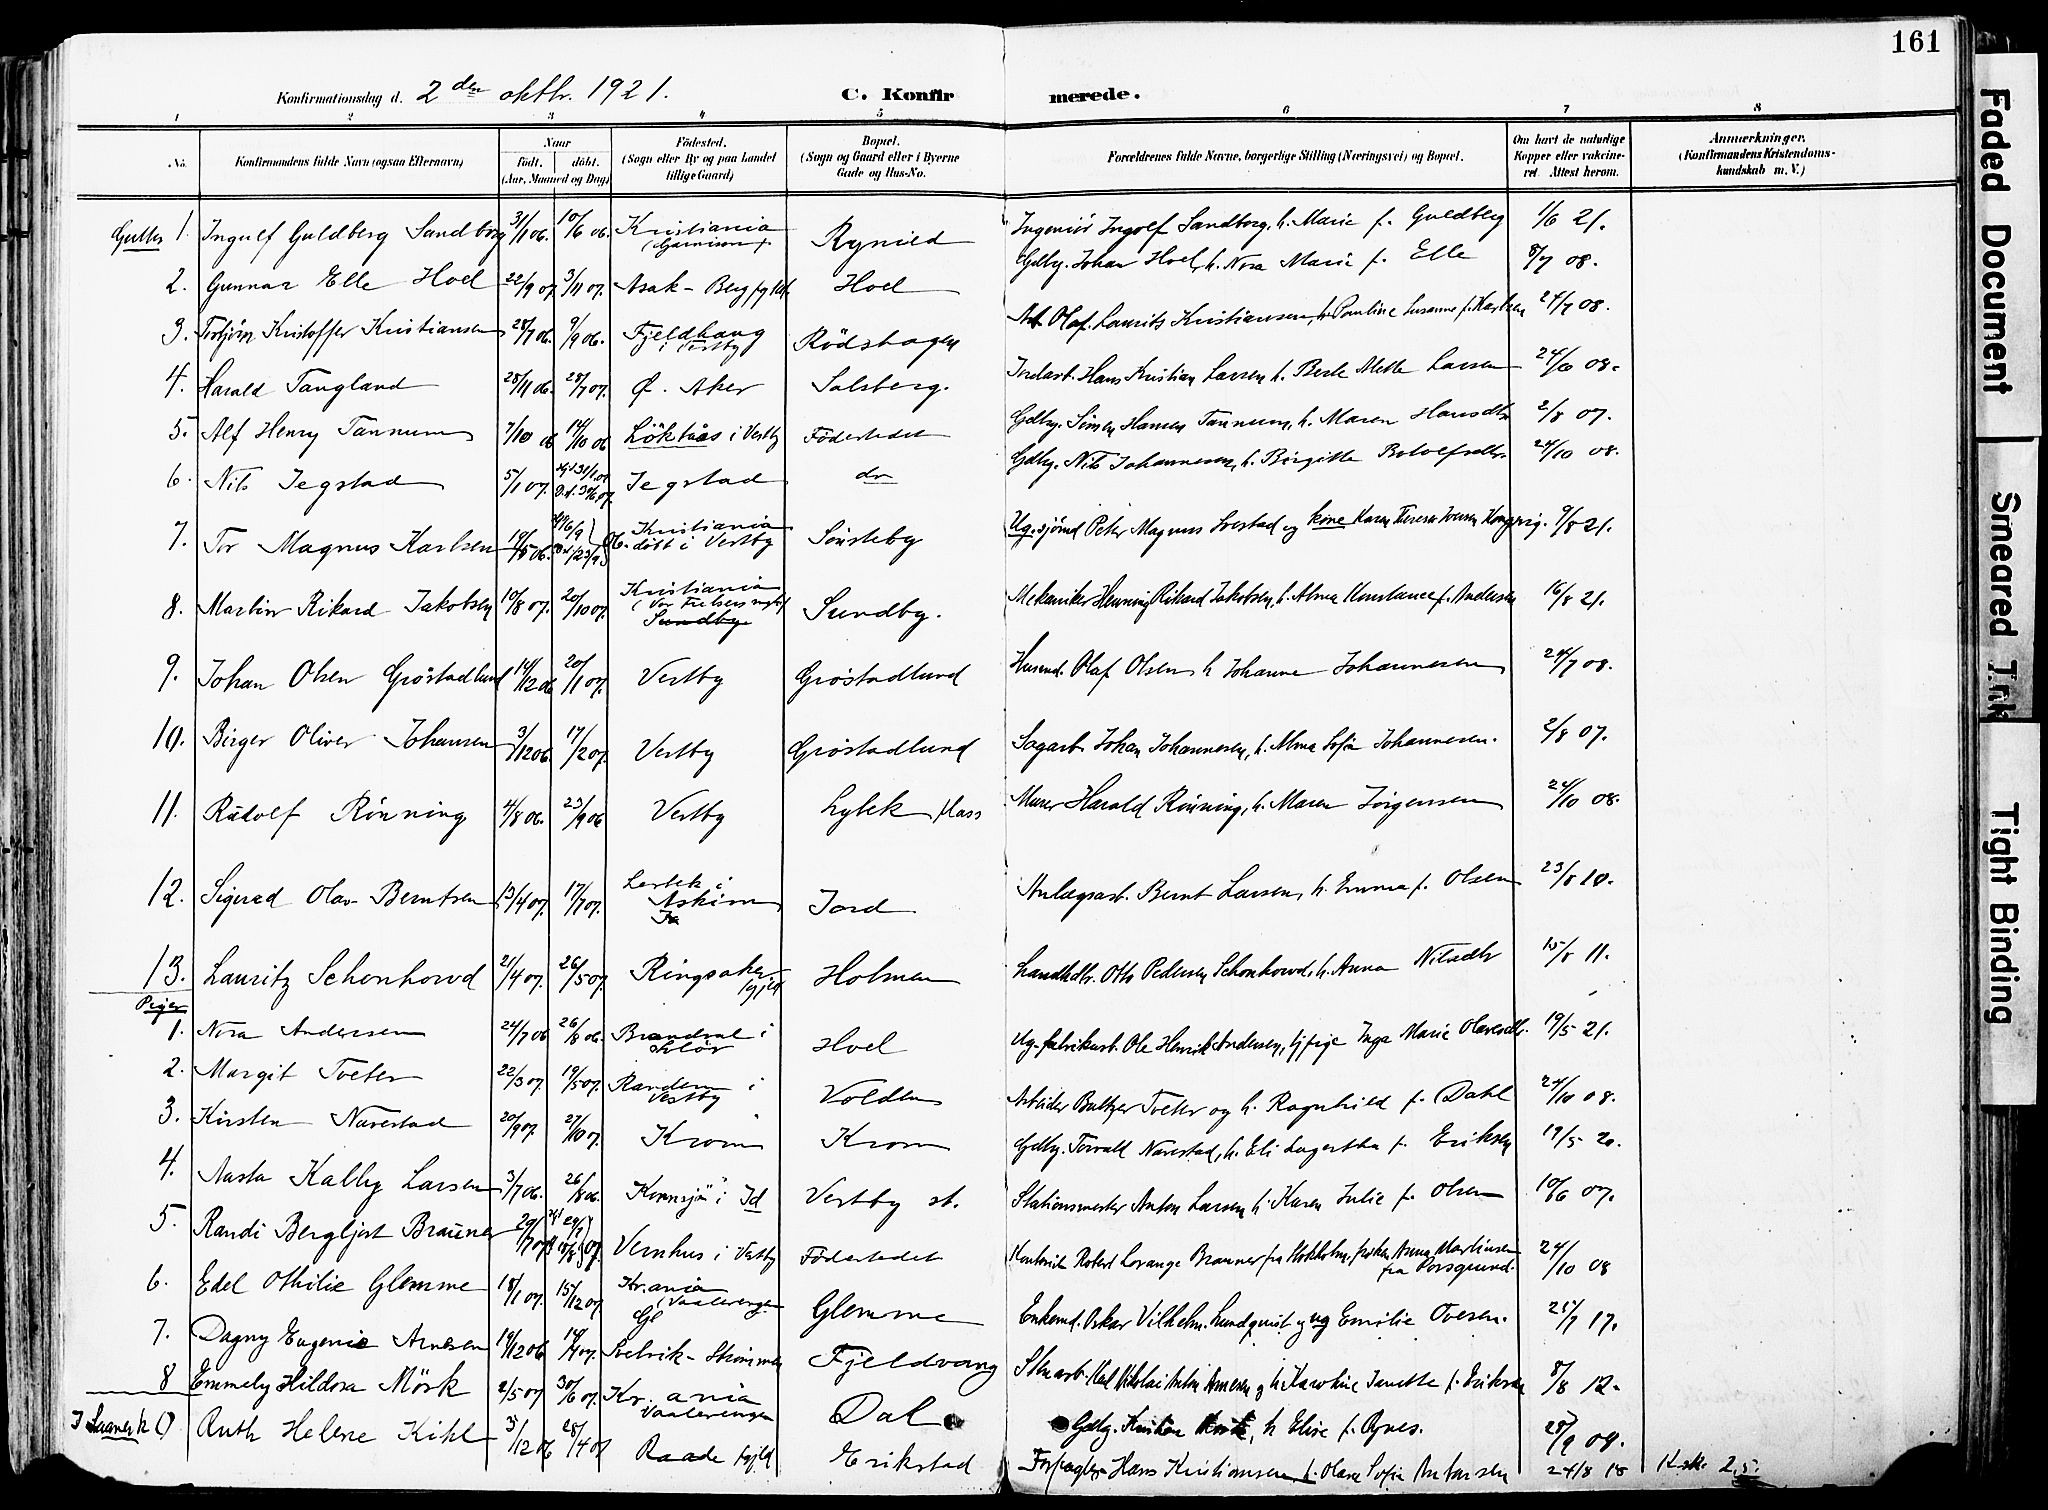 161
Konfirmationsdag d. 2den oktbr. 1921.
C. Konfirmerede.
1 2 3 4 5 6 7 8
No.
Konfirmandens fulde Navn (ogsaa Efternavn)
Naar
født. døbt.
(Aar, Maaned og Dag)
Födested.
(Sogn eller By og paa Landet
tillige Gaard)
Bopæl.
(Sogn og Gaard eller i Byerne
Gade og Hus-No.
Forældrenes fulde Navne, borgerlige Stilling (Næringsvei) og Bopæl.
Om havt de naturlige
Kopper eller vakcineret. Attest herom.
Anmærkninger.
(Konfirmandens Kristendomskundskab m. V.)
Gutter 1. Ingulf Guldberg Sandborg 31/1 06. 10/6 06. Kristiania Rynild Ingeniör Ingolf Sandborg, h. Marie f. Guldberg 1/6 21.
2. Gunnar Elle Hoel 22/9 07. 3/11 07. Asak - Berg Hoel Gdbr. Johan Hoel, h. Nora Marie f. Elle 8/7 08.
3. Torbjörn Kristoffer Kristiansen 28/7 06. 9/9 06. Fjeldhaug i Vestby Rödshagen Arb. Olaf Laurits Kristiansen, h. Pauline Susanne f. Karlsen 24/7 08.
4. Harald Tangland 28/11 06. 28/7 07. Ø. Aker Salsberg. Jordarb. Hans Kristian Larsen h. Berle Mette Larsen 24/10 08.
5. Alf Henry Tannum 7/10 06 14/10 06 Löktaas i Vestby Födestedet Gdbr. Simen Hansen Tannum, h. Maren Hansdtr 2/8 07.
6. Nils Jegstad 5/1 07. Jegstad do Gdbr. Nils Johannesen, h. Birgitte Rolvfsdtr. 24/10 08.
7. Tor Magnus Karlsen 19/5 06. Kristiania döbt i Vestby Sönsteby Ug. sjömd Peter Magnus Svestad og kone Karen Teresen Iversen 9/8 21.
8. Martin Rikard Jakobsen 10/8 07. 20/10 07. Kristiania (Vor Frelsers Sundby Sundby. Mekaniker Henning Rikard Jakobsen, h. Alma Konstance f. Andersen 16/8 21.
9. Johan Olsen Gröstadlund 14/12 06 20/1 07. Vestby Gröstadlund Husmd. Olaf Olsen h Johanne Johannesen 24/7 08.
10. Birger Oliver Johansen 3/12 06. 17/2 07. Vestby Gröstadlund Sagarb. Johan Johannesen, h. Alma Sofie Johannesen. 2/8 07.
11. Rudolf Rönning 4/8 06. 23/9 06 Vestby Lybek plass Murer Harald Rönning, h. Maren Jörgensen 24/10 08.
12. Sigurd Olav Berntsen 13/4 07. 17/7 07. Askim Jord Anlægsarb. Bernt Larsen, h. Emma f. Olsen 23/8 10.
13. Lauritz Schonhowd 21/4 07. 26/5 07 Ringsaker Holmen Landhdlr. Otto Pedersen Schonhowd, h. Anna Nilsdtr 15/8 11.
Piger
1. Nora Andersen 24/7 06 26/8 06. Brandval i Solör Hoel Ug. fabrikarb. Ole Henrik Andersen, tj.pige Inga Marie Olavesdtr. 19/5 21.
2. Margit Tveter 22/3 07. 19/5 07. Randem i Vestby Volden Arbeider Baltzer Tveter og h. Ragnhild f. Dahl 24/10 08.
3. Kirsten Narestad 20/9 07. 27/10 07. Krom Krom Gdbr. Torvald Narestad, h. Eli Lagertha f. Eriksen 19/5 20.
4. Aasta Kalby Larsen 3/7 06. 26/8 06. Kornsjö i Id Vestby st. Stationsmester Anton Larsen h. Karen Julie f. Olsen 10/6 07.
5. Randi Bergljot Brauner Vernhus i Vestby Födestedet Kontorist Robert Lorange Brauner fra Stokholm, fröken Anna Martinsen fra Porsgrund. 24/10 08
6. Edel Othilie Glemme 18/1 07. 15/12 07 Kr.ania (Vaalerengen Gl Glemme Enkemd. Oskar Vilhelm Lundquist og ug Emilie Ovesen. 25/7 17.
7. Dagny Eugenie Arnesen 19/12 06 Svelvik - Strömmen Fjeldvang Stenarb. Karl Nikolai Anton Arnesen og h. Karoline Janette f. Eriksen 8/8 12.
8 Emmely Hildora Mörk 2/5 07 30/6 07. Kr.ania Vaalerengen Dal Gdbr. Kristian Mörk, h Elise f. Rynes. 28/9 09.
Ruth Helene Kihl 3/12 06 28/4 07 Raade Erikstad Forpagter Hans Kristiansen h. Olava Sofie Antonsen 24/8 18 Krk. 2,5.
Faded Document
Smeared Ink
Tight Binding